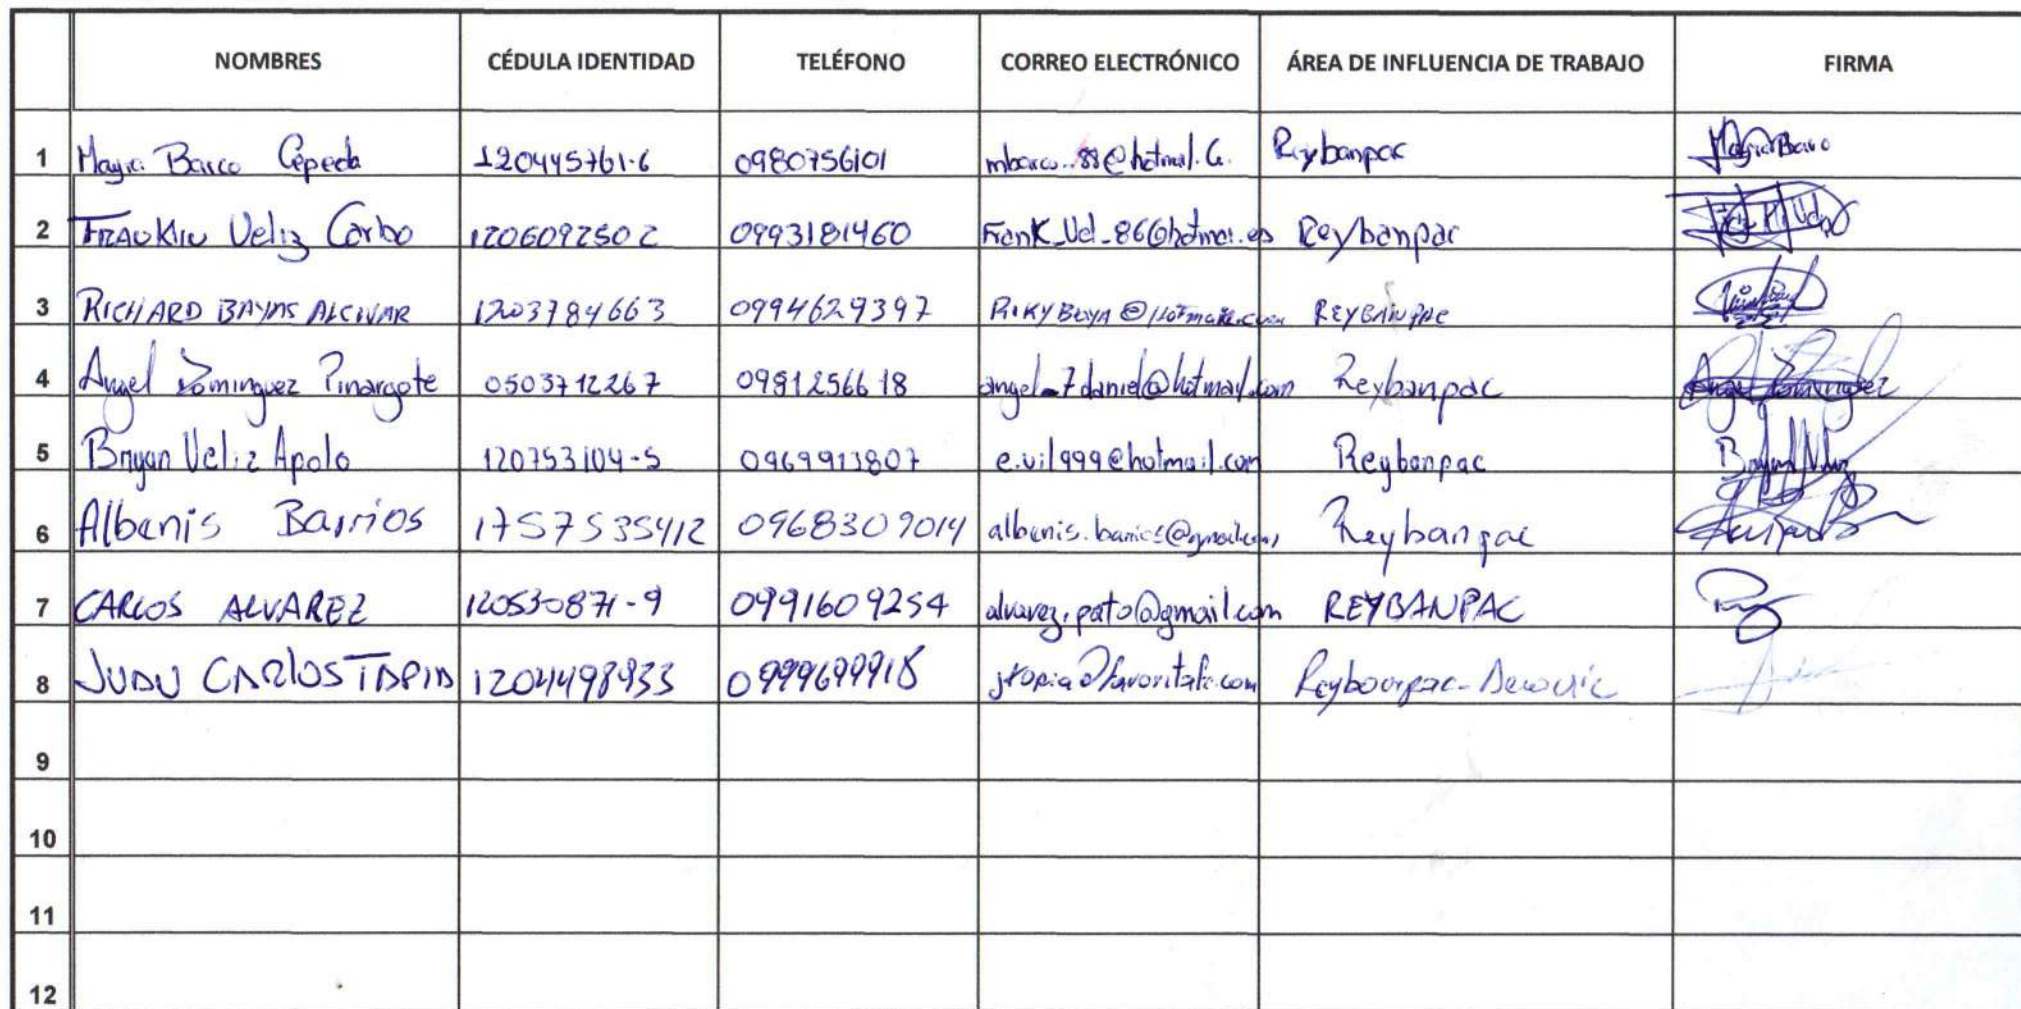 NOMBRES CÉDULA IDENTIDAD TELÉFONO CORREO ELECTRÓNICO ÁREA DE INFLUENCIA DE TRABAJO FIRMA
1 Mayra Barco Cepeda 120445761-6 0980756101 Reybanpac
2 FRANKlin Veliz Carbo 1206092502 0993181460 Reybanpac
3 RICHARD BAYAS ALCIVAR 1203784663 0994629397 REYBANPAC
4 Angel Dominguez Pinargote 0503712267 0981256618 angel_7daniel@hotmail.com Reybanpac
5 Bryan Veliz Apolo 120753104-5 0969913807 e.vil999@hotmail.com Reybanpac
6 Albanis Barrios 1757535412 0968309014 albanis.barrios@gmail.com Reybanpac
7 CARLOS ALVAREZ 120530871-9 0991609254 alvarez.pato@gmail.com REYBANPAC
8 JUAN CARLOS TAPIA 0999699918
9
10
11
12